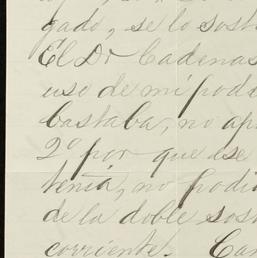 gado, se lo sost
El Dr Cadenas
uso de mi pod
bastaba, no ap
2º por que ese
tenia, no podi
de la doble sost
corriente. Car